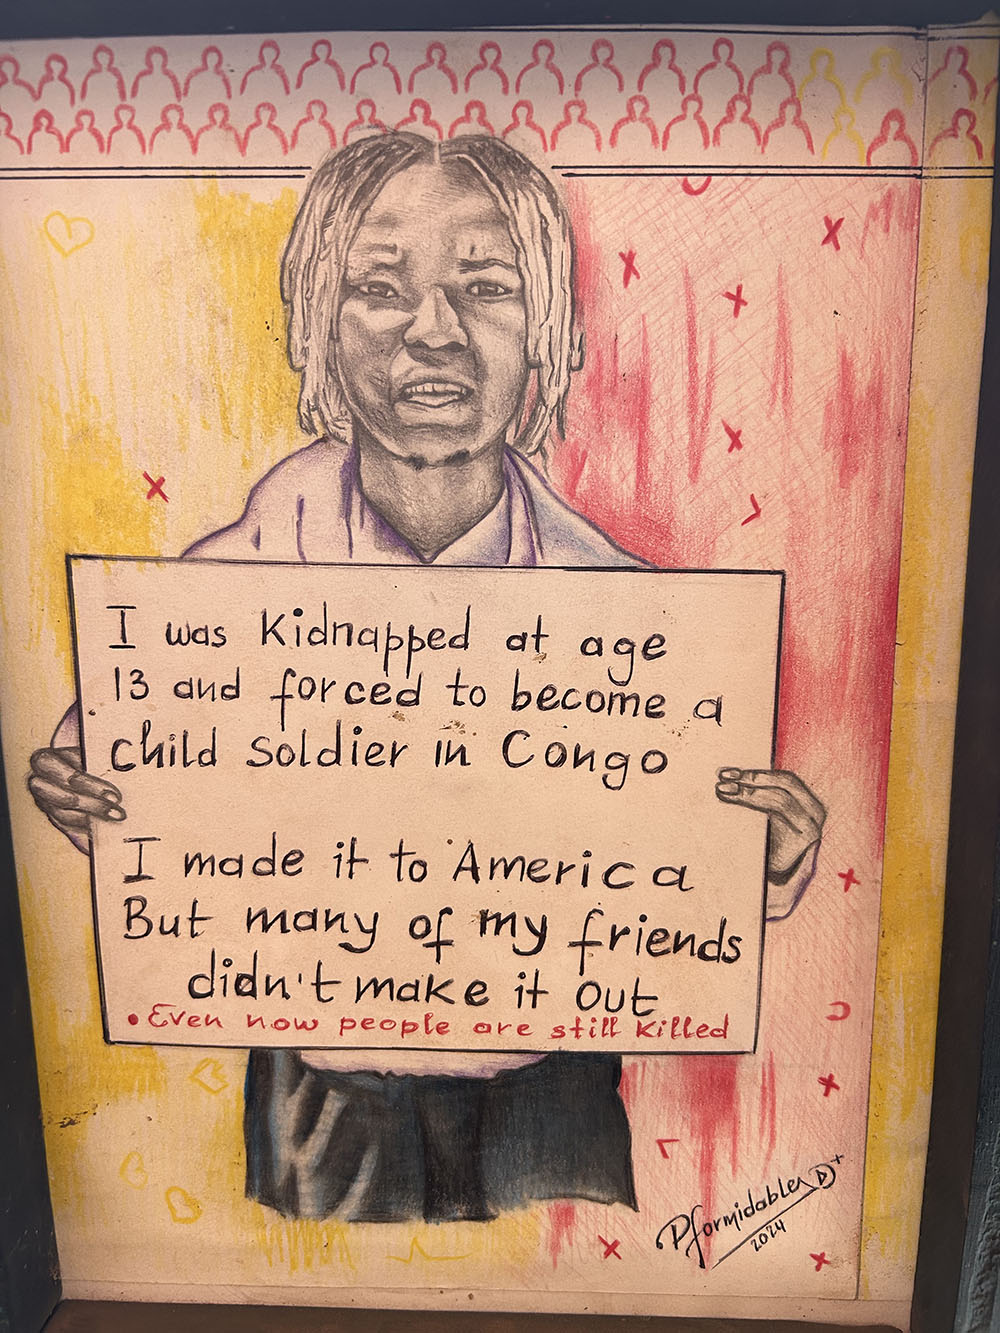 I was Kidnapped at age
13 and forced to become a
child soldier in Congo
I made it to America
But many of my friends
didn't make it out
• Even now people are still killed
Pformidables D+
2024